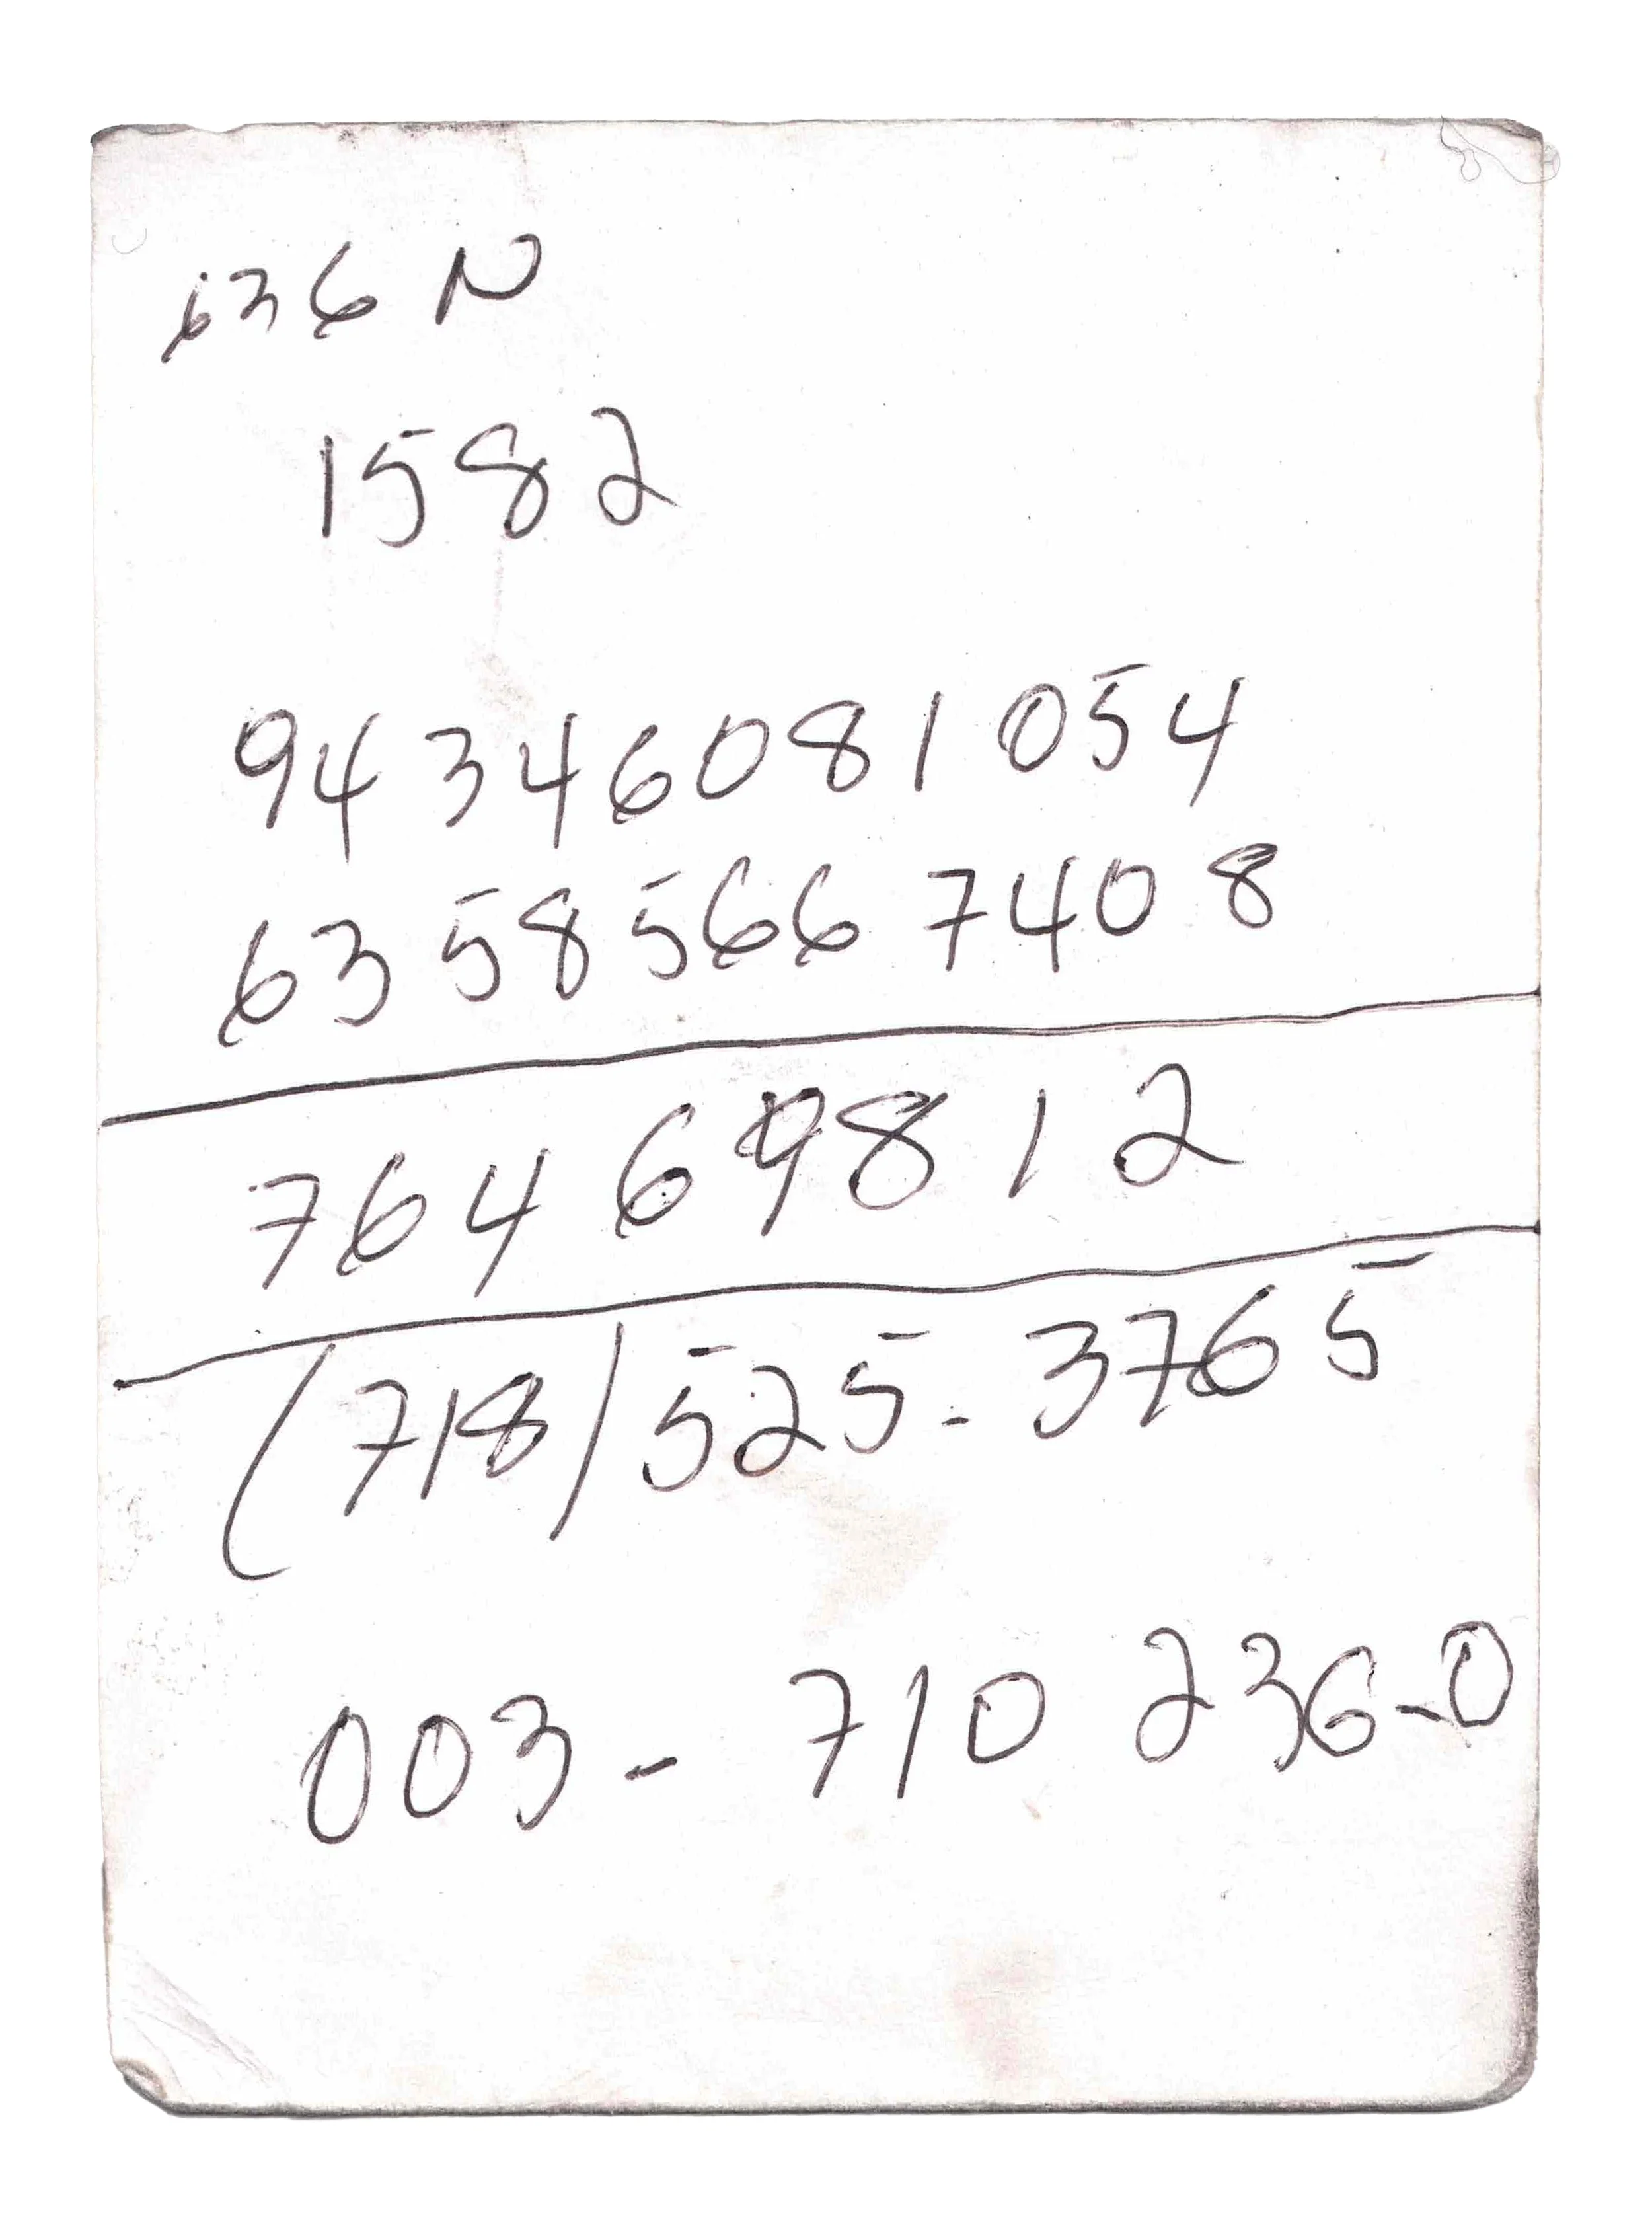 636 N
1582
94346081054
63585667408
76469812
(718) 525-3765
003-710 236-0